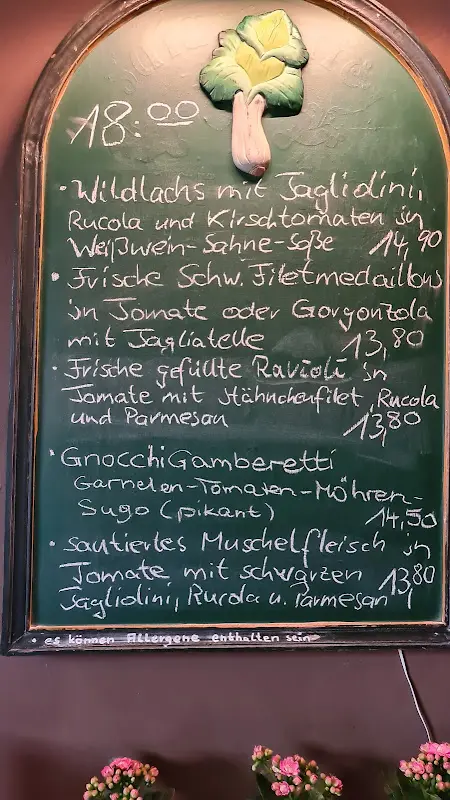 18:00
• Wildlachs mit Tagliolini,
Rucola und Kirschtomaten in
Weißwein-Sahne-Soße 14,90
• Frische Schw. Filetmedaillons
in Tomate oder Gorgonzola
mit Tagliatelle 13,80
• Frische gefüllte Ravioli in
Tomate mit Hähnchenfilet, Rucola
und Parmesan 13,80
• Gnocchi Gamberetti
Garnelen-Tomaten-Möhren-
Sugo (pikant) 14,50
• sautiertes Muschelfleisch in
Tomate mit schwarzen 13,80
Tagliolini, Rucola u. Parmesan
• es können Allergene enthalten sein